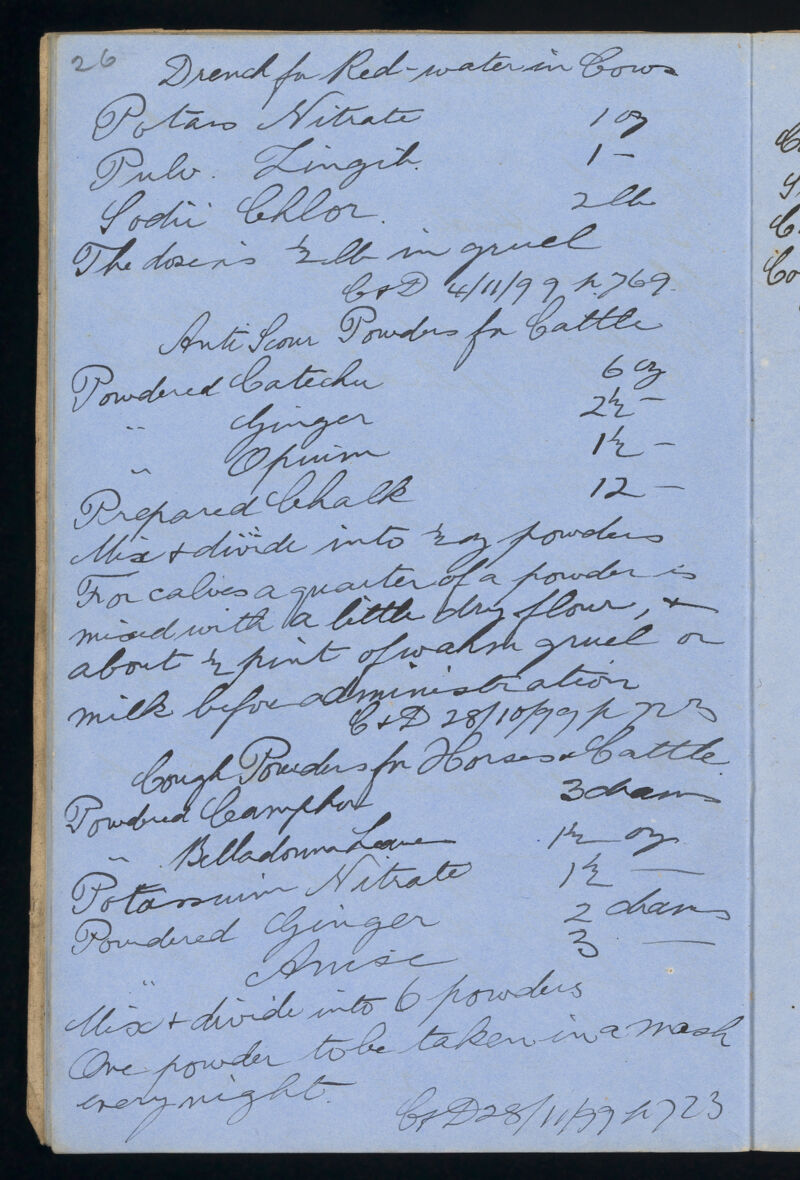 26
Drench for Red-water in Cows
Potass Nitrate 1 oz
Pulv. Zingib. 1 –
Sodii Chlor. 2 lb
The dose is ½ lb in gruel
C & D 4/11/99 p 769.
Anti Scour Powders for Cattle
Powdered Catechu 6 oz
" Ginger 2½ –
" Opium 1½ –
Prepared Chalk 12 –
Mix & divide into ½ oz powders
For calves a quarter of a powder is
mixed with a little dry flour, &
about ½ pint of warm gruel or
milk before administration
C & D 28/10/99 p 723
Cough Powders for Horses & Cattle
Powdered Camphor 3 drams
" Belladonna Leaves 1½ oz
Potassium Nitrate 1½ —
Powdered Ginger 2 drams
" Anise 3 —
Mix & divide into 6 powders
One powder to be taken in a mash
every night.
C & D 28/11/99 p 723
C
S
C
Co